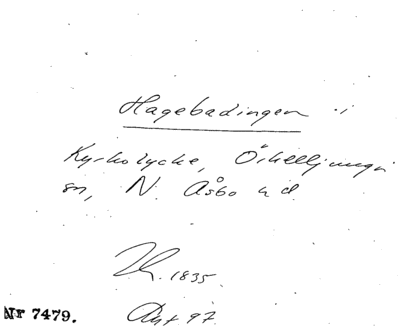 Hagebadingen i
Kyrkolycke, Örkelljunga
sn, N. Åsbo hd.
1835.
Nr 7479.